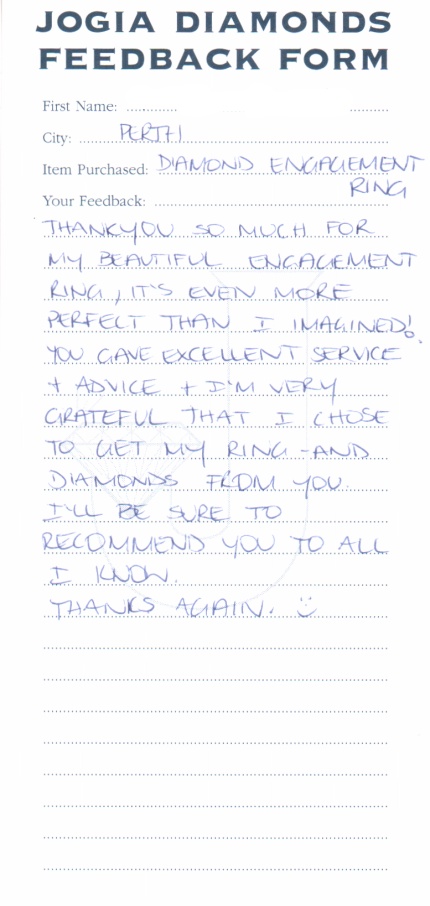 JOGIA DIAMONDS
FEEDBACK FORM
First Name: ............ ..........
City: ........PERTH
Item Purchased: DIAMOND ENGAGEMENT
RING
Your Feedback:
THANKYOU SO MUCH FOR
MY BEAUTIFUL ENGAGEMENT
RING, IT'S EVEN MORE
PERFECT THAN I IMAGINED!
YOU GAVE EXCELLENT SERVICE
+ ADVICE + I'M VERY
GRATEFUL THAT I CHOSE
TO GET MY RING - AND
DIAMONDS FROM YOU.
I'LL BE SURE TO
RECOMMEND YOU TO ALL
I KNOW.
THANKS AGAIN. :)